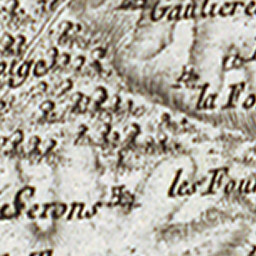 Gauliere
la Fo
les Fou
Serons